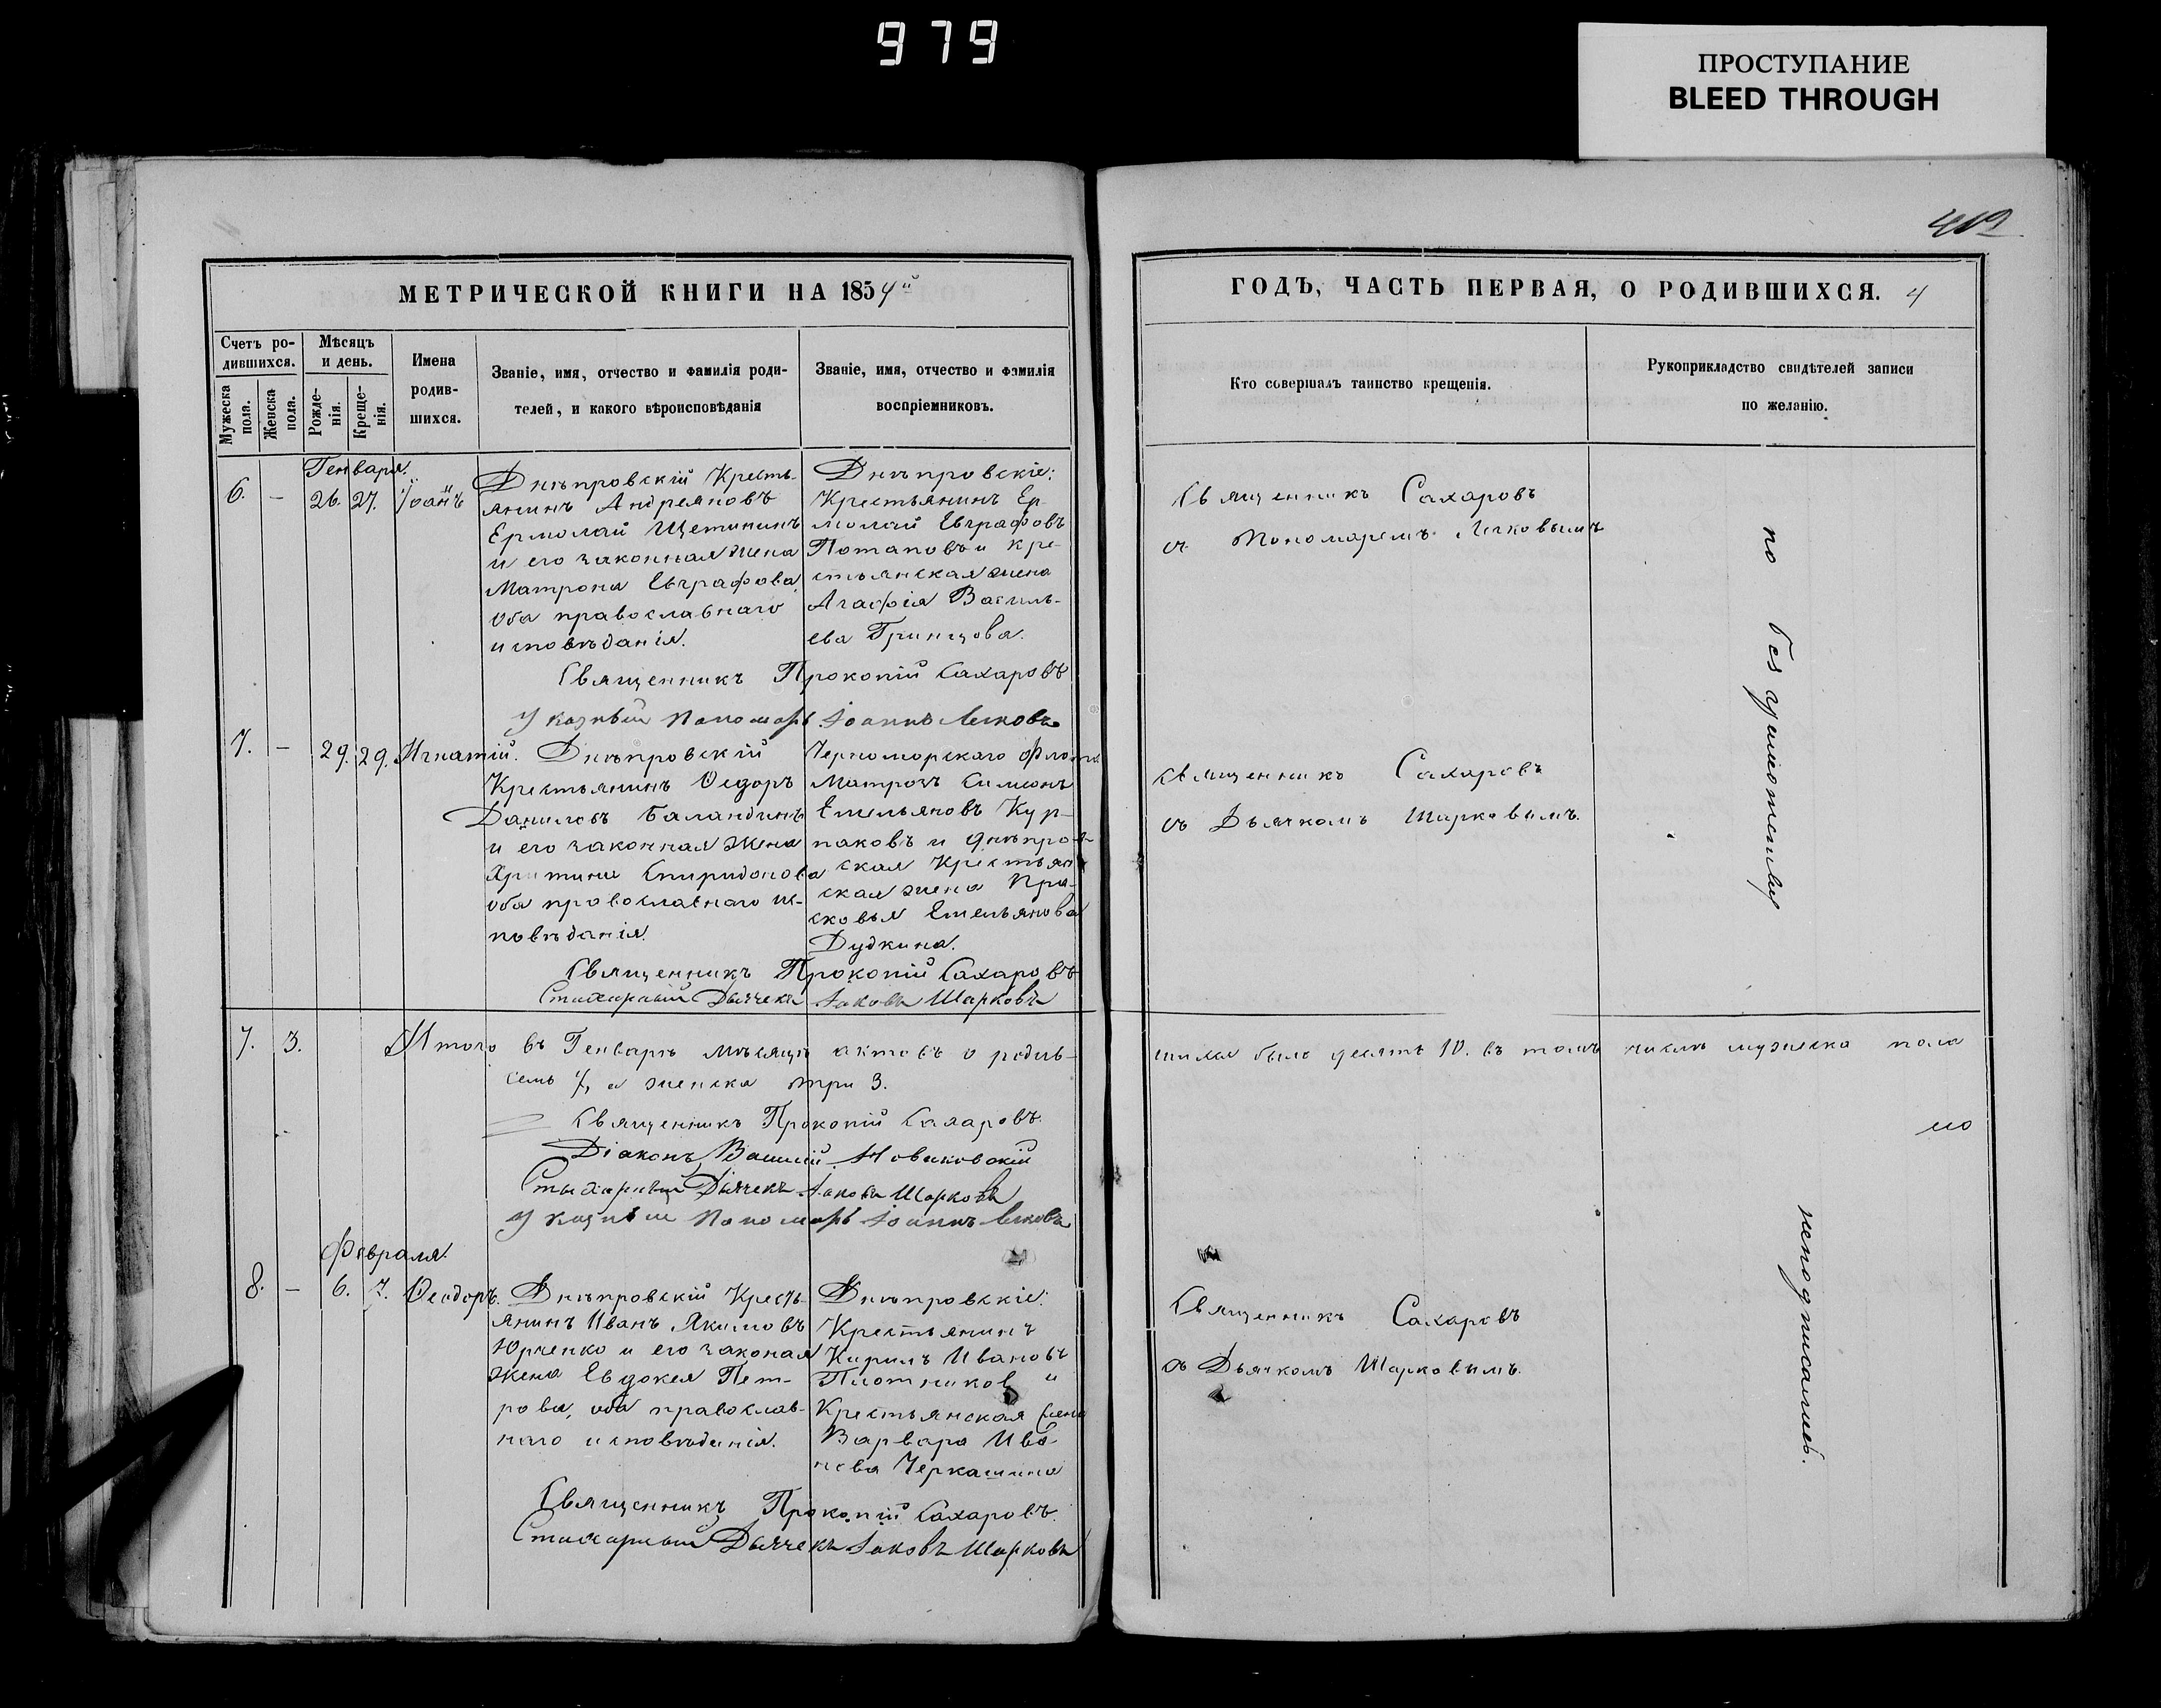 979
ПРОСТУПАНИЕ
BLEED THROUGH
МЕТРИЧЕСКОЙ КНИГИ НА 1854й
Счетъ родившихся.
Мужеска пола.
Женска пола.
Мѣсяцъ и день.
Рожденія.
Крещенія.
Имена родившихся.
Званіе, имя, отчество и фамилія роди-
телей, и какого вѣроисповѣданія
Званіе, имя, отчество и фамилія
воспріемниковъ.
Генваря.
6. — 26. 27. Іоаннъ
Днѣпровскій Кресть-
янинъ Андреяновъ
Ермолай Щетининъ
и его законная жена
Матрона Евграфова
оба православнаго
исповѣданія.
Днѣпровскіе:
Крестьянинъ Ер-
молай Евграфовъ
Потаповъ и кре-
стьянская жена
Агафія Василь-
ева Гринцова.
Священникъ Прокопій Сахаровъ
Указный Пономарь Іоаннъ
7. — 29. 29. Игнатій.
Днѣпровскій
Крестьянинъ Ѳедоръ
Даниловъ Баландинъ
и его законная жена
Христина Спиридонова
оба православнаго ис-
повѣданія.
Черноморскаго флота
Матрозъ Симеонъ
Емельяновъ Кур-
паковъ и днѣпров-
ская Крестьян-
ская жена Пра-
сковья Емельянова
Дудкина.
Священникъ Прокопій Сахаровъ
Стихарный Дьячекъ Іаковъ Шарковъ
7. 3. Итого въ Генварѣ мѣсяцѣ актовъ о родив-
семь 7, а женска три 3.
Священникъ Прокопій Сахаровъ.
Діаконъ Василій Новиковскій
Стихарный Дьячекъ Іаковъ Шарковъ
Указный Пономарь Іоаннъ
Февраля.
8. — 6. 7. Ѳеодоръ.
Днѣпровскій Кресть-
янинъ Иванъ Якимовъ
Юрченко и его законая
жена Евдокея Пет-
рова, оба православ-
наго исповѣданія.
Днѣпровскіе:
Крестьянинъ
Кирилъ Ивановъ
Плотников и
Крестьянская жена
Варвара Ива-
нова Черкашина
Священникъ Прокопій Сахаровъ.
Стихарный Дьячекъ Іаковъ Шарковъ
4
ГОДЪ, ЧАСТЬ ПЕРВАЯ, О РОДИВШИХСЯ.
Кто совершалъ таинство крещенія.
Рукоприкладство свидѣтелей записи
по желанію.
Священникъ Сахаровъ
съ Пономаремъ
Священникъ Сахаровъ
съ Дьячкомъ Шарковымъ.
по безграмотству
шихся было десять 10. въ томъ числѣ мужеска пола
Священникъ Сахаровъ
съ Дьячкомъ Шарковымъ.
неподписались.